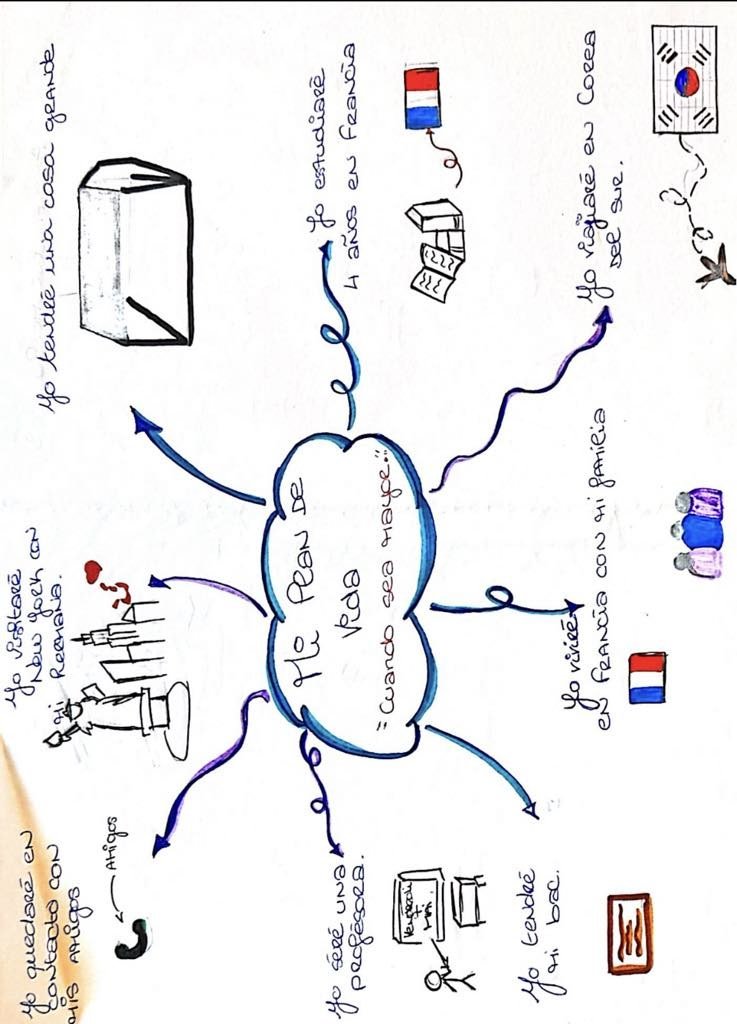 Yo quedaré en
contacto con
mis amigos
Amigos
Yo visitaré
New York con
mi hermana.
Yo tendré una casa grande
Yo seré una
profésora.
Mi Plan de
Vida
"Cuando sea mayor.."
Yo estudiaré
4 años en Francia
Yo tendré
mi bac.
Yo viviré
en Francia con mi familia
Yo viajaré en Corea
del sur.